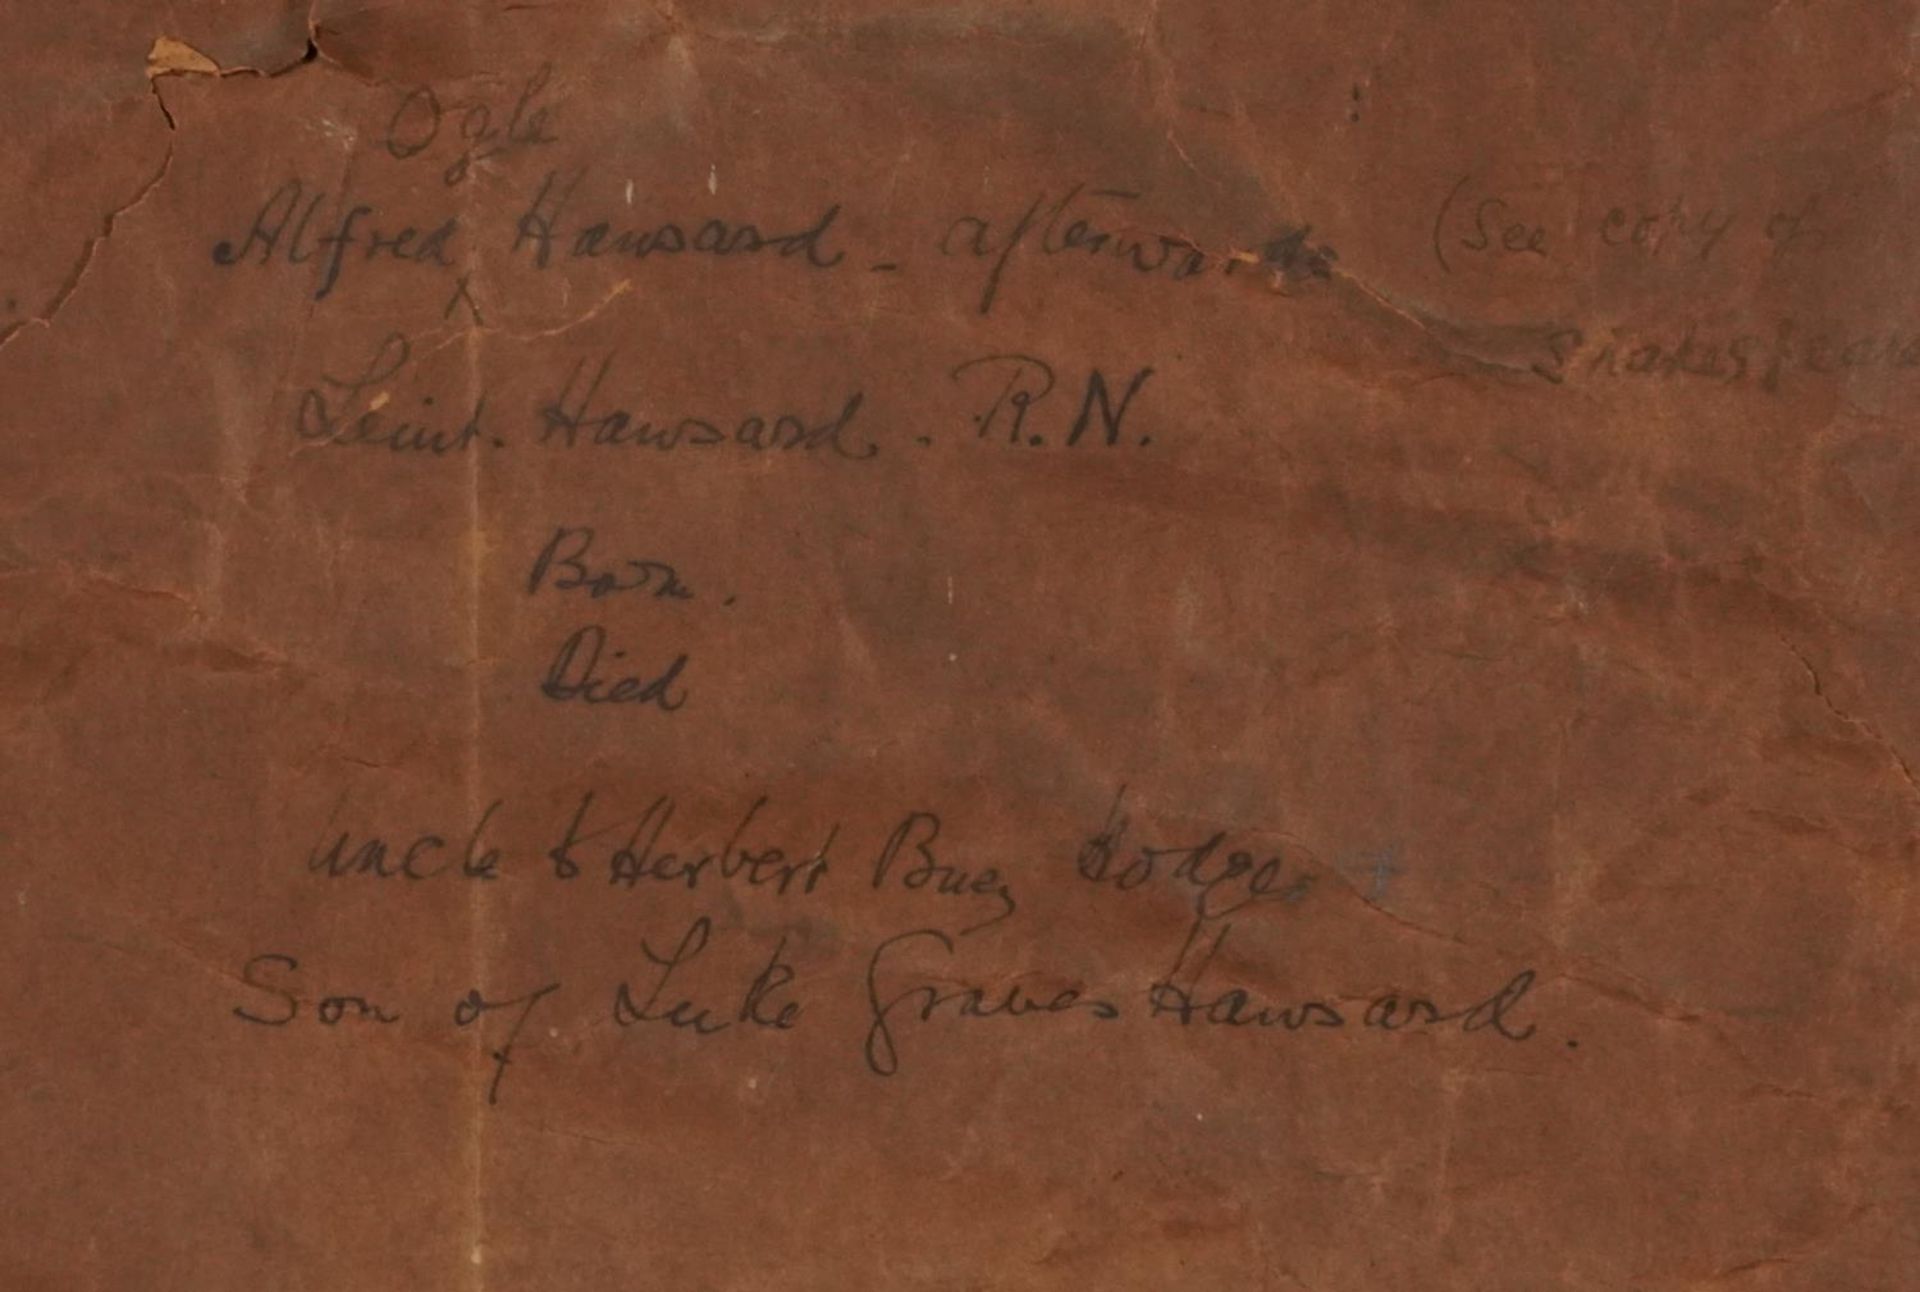 Ogle
Alfred Hansard - afterwards (See copy of
Shakespeare
Leiut. Hansard. R.N.
Born.
Died
Uncle to Herbert Hodges +
Son of Luke Graves Hansard.